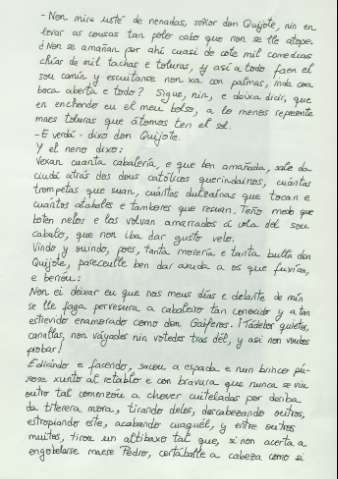 - Non mire usté de nenadas, señor don Quijote, nin en
levar as cousas tan polo cabo que non se lle atope.
¿Non se amañan por ahí cuasi de cote mil comedias
chías de mil tachas e toturas, y así a todo faen el
sou camín y escuitanse non xa con palmas, inda coa
boca aberta e todo? Sigue, nin, e deixa dicir, que
en enchendo eu el meu bolso, a lo menos represente
maes toturas que átomos ten el sol.
- E verdá - dixo don Quijote.
Y el neno dixo:
Vexan cuanta cabalería, e que ben amañada, sale da
ciudá atrás dos dous católicos queridaínos, cuántas
trompetas que suan, cuántas dulzainas que tocan e
cuantos atabales e tambores que resuan. Teño medo que
boten nelos e los volvan amarrados á cola del sou
cabalo, que non iba dar gusto velo.
Vindo y ouindo, pois, tanta morería e tanta bulla don
Quijote, pareceulle ben dar axuda a os que fuxían,
e berrou:
Non ei deixar eu que nos meus días e delante de min
se lle faga perversura a cabaleiro tan conocido y a tan
atrevido enamorado como don Gaiferos. ¡Tádevos quietos,
canallas, non váyades nin votedes tras dél, y así non vos
probar!
E dicindo e facendo, sacou a espada e nun brinco pú-
xose xunto al retablo e con bravura que nunca se viu
outro tal comenzou a chover cuiteladas por denba
da titerera mora, tirando delos, descabezando outros,
estropiando este, acabando cuaquel, y entre outros
muitos, tirou un altibaxo tal que, si non acerta a
engobelarse maese Pedro, cortáballe a cabeza como si